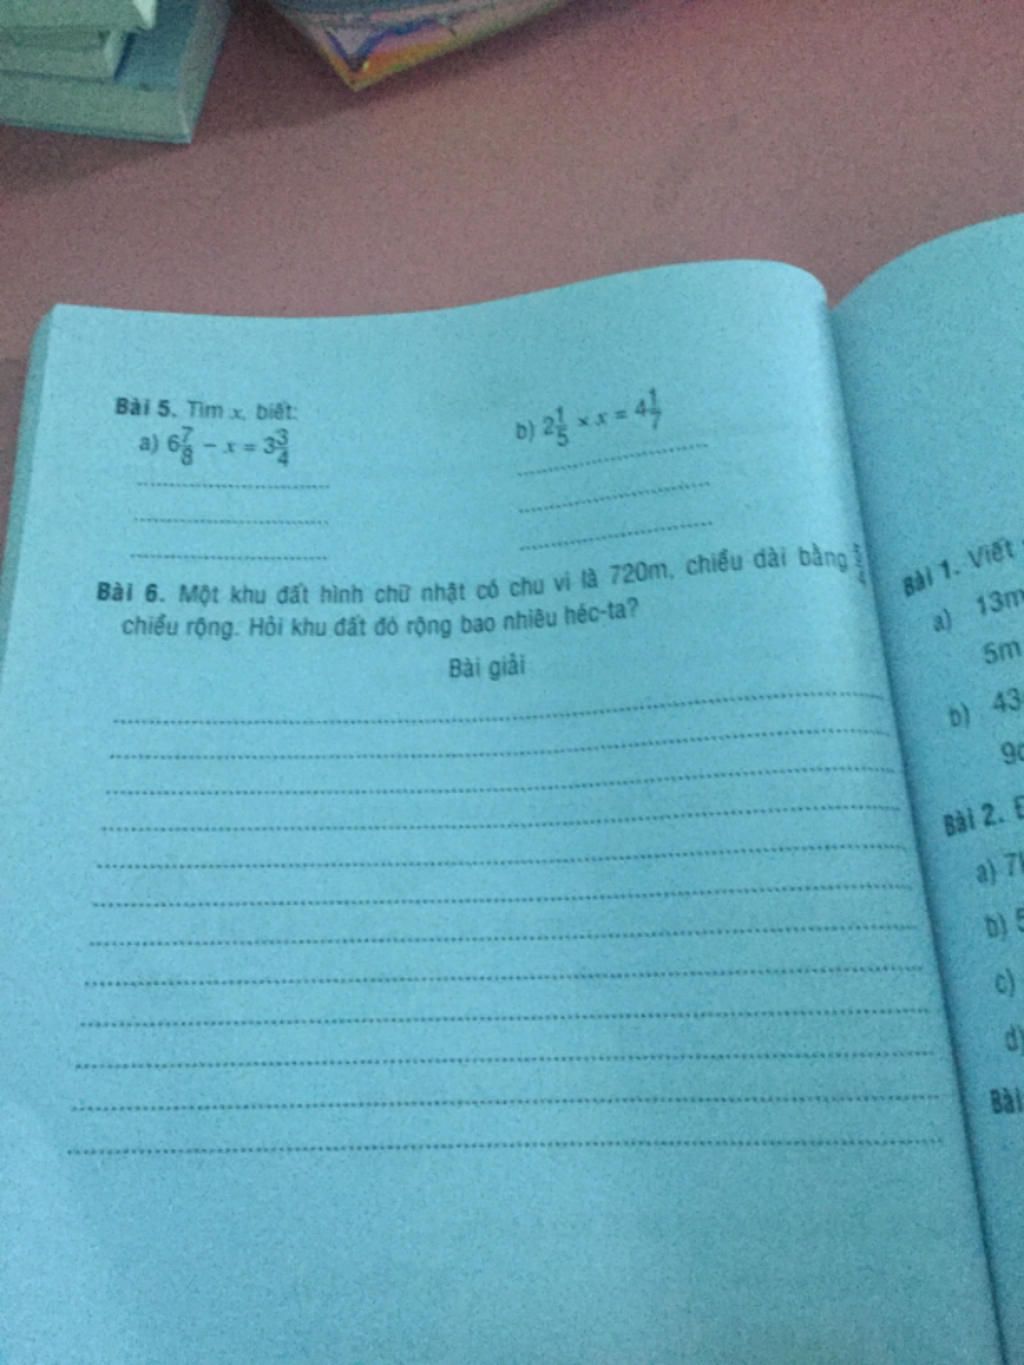 Bài 5. Tìm x, biết:
a) 6 7/8 − x = 3 3/4
b) 2 1/5 × x = 4 1/7
Bài 6. Một khu đất hình chữ nhật có chu vi là 720m, chiều dài bằng 5/4
chiều rộng. Hỏi khu đất đó rộng bao nhiêu héc-ta?
Bài giải
Bài 1. Viết
a) 13m
5m
b) 43
9
Bài 2.
a) 7
b) 5
c)
d)
Bài